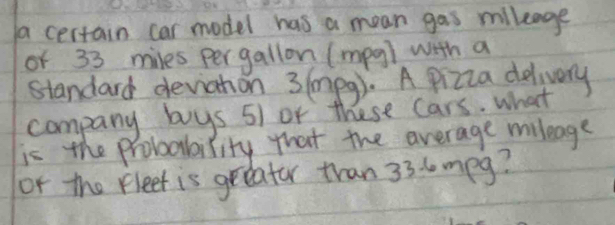 a certain car model has a mean gas mileage
of 33 miles per gallon (mpg) with a
standard deviation 3(mpg). A pizza delivery
company buys 51 of these cars. what
is the probability that the average mileage
of the fleet is greater than 33.6 mpg?